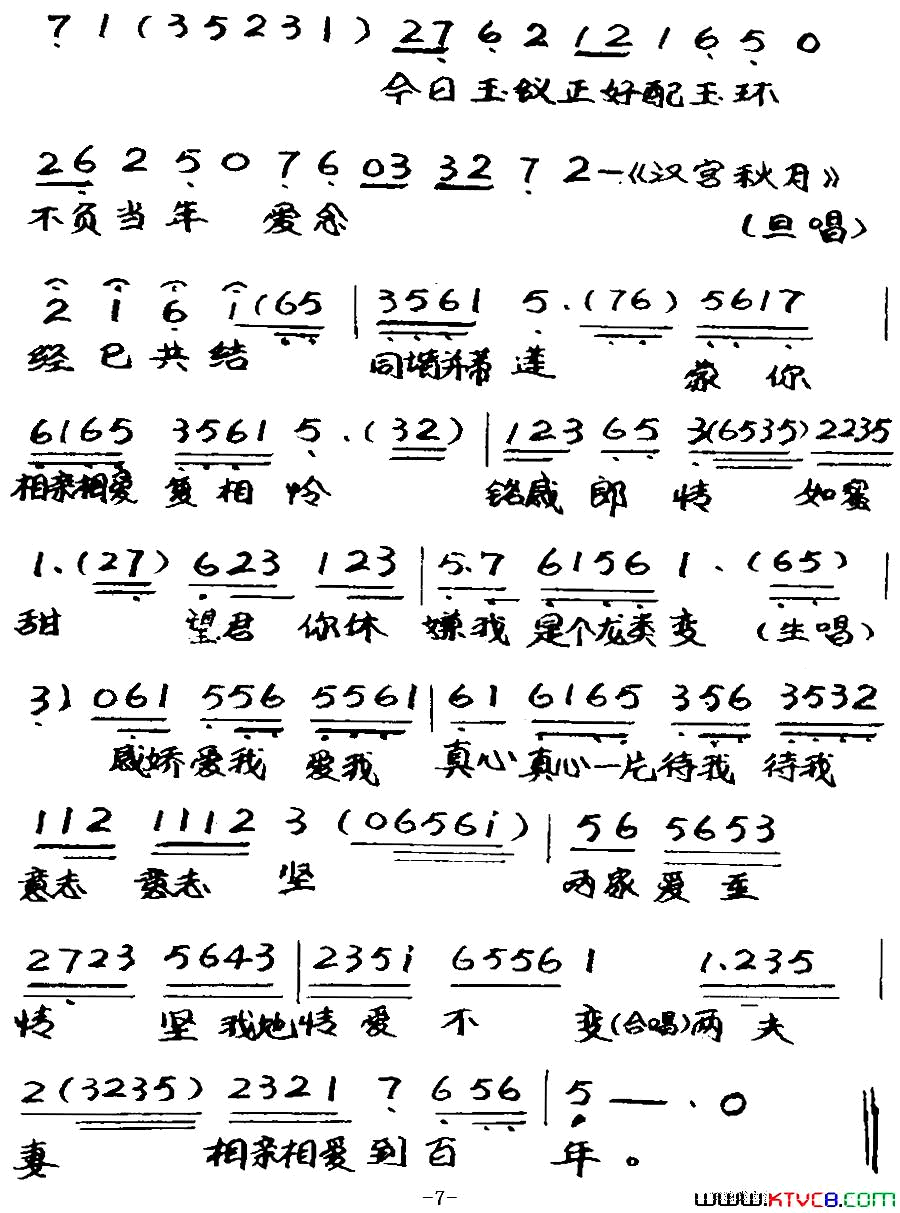 7 1 ( 3 5 2 3 1 ) 2 7 6 2 1 2 1 6 5 0
今日玉蚁正好配玉环
2 6 2 5 0 7 6 0 3 3 2 7 2 —《汉宫秋月》
不负当年 爱念 (旦唱)
2 1 6 i ( 6 5 | 3 5 6 1 5 . ( 7 6 ) 5 6 1 7 |
经已共结 同墙并蒂莲 蒙你
6 1 6 5 3 5 6 1 5 . ( 3 2 ) | 1 2 3 6 5 3 ( 6 5 3 5 ) 2 2 3 5
相亲相爱 复相怜 铭感郎情 如蜜
1 . ( 2 7 ) 6 2 3 1 2 3 | 5 . 7 6 1 5 6 1 . ( 6 5 ) |
甜 望君 你休 嫌我 是个龙类变 (生唱)
3 ) 0 6 1 5 5 6 5 5 6 1 | 6 1 6 1 6 5 3 5 6 3 5 3 2
感娇爱我 爱我 真心真心一片待我 待我
1 1 2 1 1 1 2 3 ( 0 6 5 6 i ) | 5 6 5 6 5 3
意志 意志 坚 两家爱至
2 7 2 3 5 6 4 3 | 2 3 5 i 6 5 5 6 1 1 . 2 3 5 |
情 坚 我她情爱 不 变(合唱)两夫
2 ( 3 2 3 5 ) 2 3 2 1 7 6 5 6 | 5 — . 0 ‖
妻 相亲相爱到百 年。
-7-
www.KTVC8.com